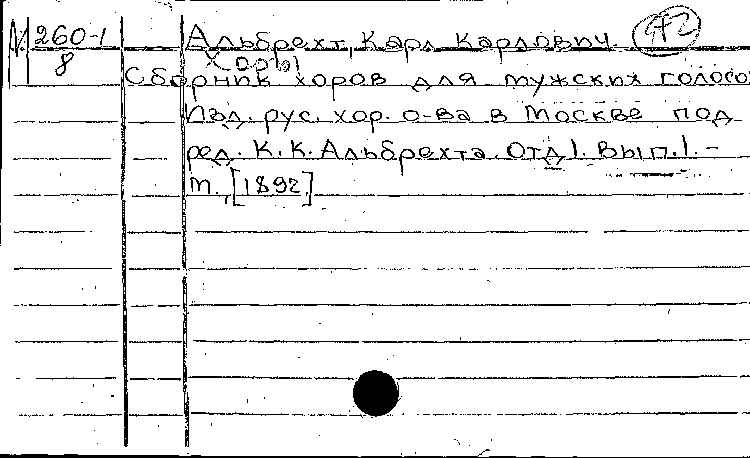 N. 260-1 Альбрехт, Карл Карлович
8 Хоры
Сборник хоров для мужских голосо
Изд. рус. хор. о-ва в Москве под
ред. К. К. Альбрехта. Отд 1. Вып. 1. –
м., [1892]